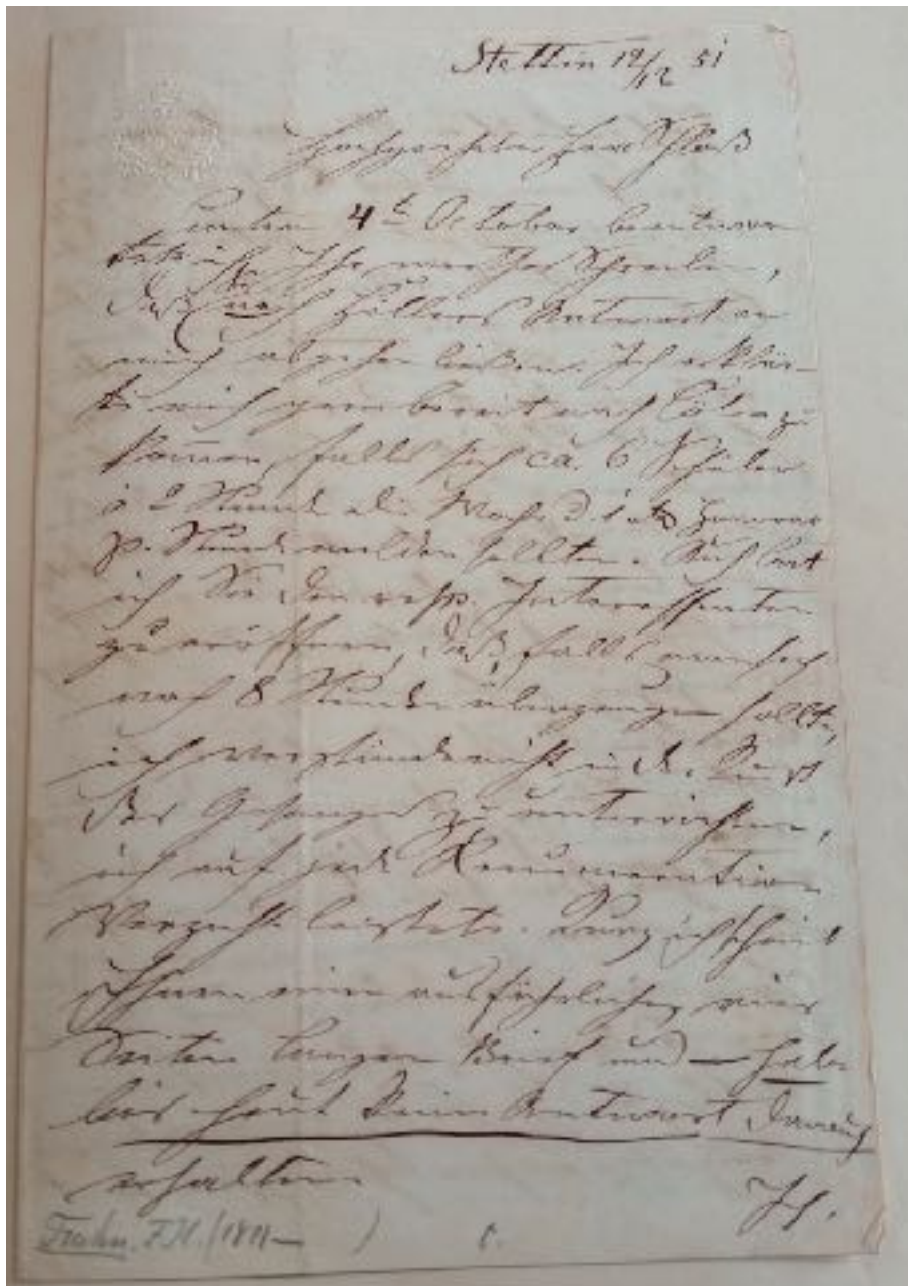 Stettin 19/12 51
Hochgeehrter Herr Schloß
unterm 4t October beantwor-
tete ich Ihr werthes Schreiben,
daß Sie nach Hillers Antwort an
mich abgehen ließen. Ich erklär-
te mich gern bereit nach Cöln zu
kommen, falls sich ca. 6 Schüler
à 2 Stund die Woche Honorar
p. Stunde melden sollten. Auch bat
ich Sie den resp. Interessenten
zu eröffnen, daß, falls man sich
nach 8 Stunden überzeugen sollte,
ich verstünde nicht in der Kunst
des Gesanges zu unterrichten,
ich auf jede Remuneration
Verzicht leistete. Kurz ich schrieb
Ihnen einen ausführlichen, vier
Seiten langen Brief und — habe
bis heut keine Antwort darauf
erhalten
Ich.